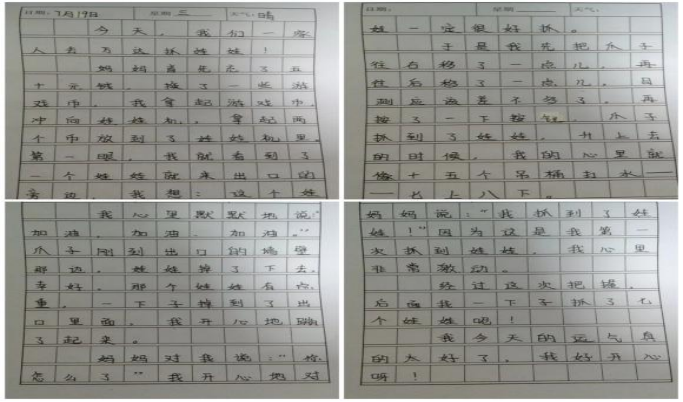 日期：7月19日 星期 三 天气：晴
今天，我们一家
人去万达抓娃娃！
妈妈首先充了五
十元钱，换了一些游
戏币，我拿起游戏币，
冲向娃娃机，拿起两
个币放到了娃娃机里。
第一眼，我就看到了
一个娃娃就来出口的
旁边，我想：这个娃
日期： 星期 天气：
娃一定很好抓。
于是我先把爪子
往右移了一点儿，再
往后移了一点儿。目
测应该差不多了，再
按了一下按钮，爪子
抓到了娃娃，升上去
的时候，我的心里就
像十五个吊桶打水——
七上八下。
我心里默默地说：“
加油，加油，加油。”
爪子刚到出口的墙壁
那边，娃娃掉了下去，
幸好，那个娃娃有点
重，一下子掉到了出
口里面，我开心地蹦
了起来。
妈妈对我说：“你
怎么了”我开心地对
妈妈说：“我抓到了娃
娃！”因为这是我第一
次抓到娃娃，我心里
非常激动。
经过这次把握，
后面我一下子抓了七
个娃娃呢！
我今天的运气真
的太好了，我好开心
呀！